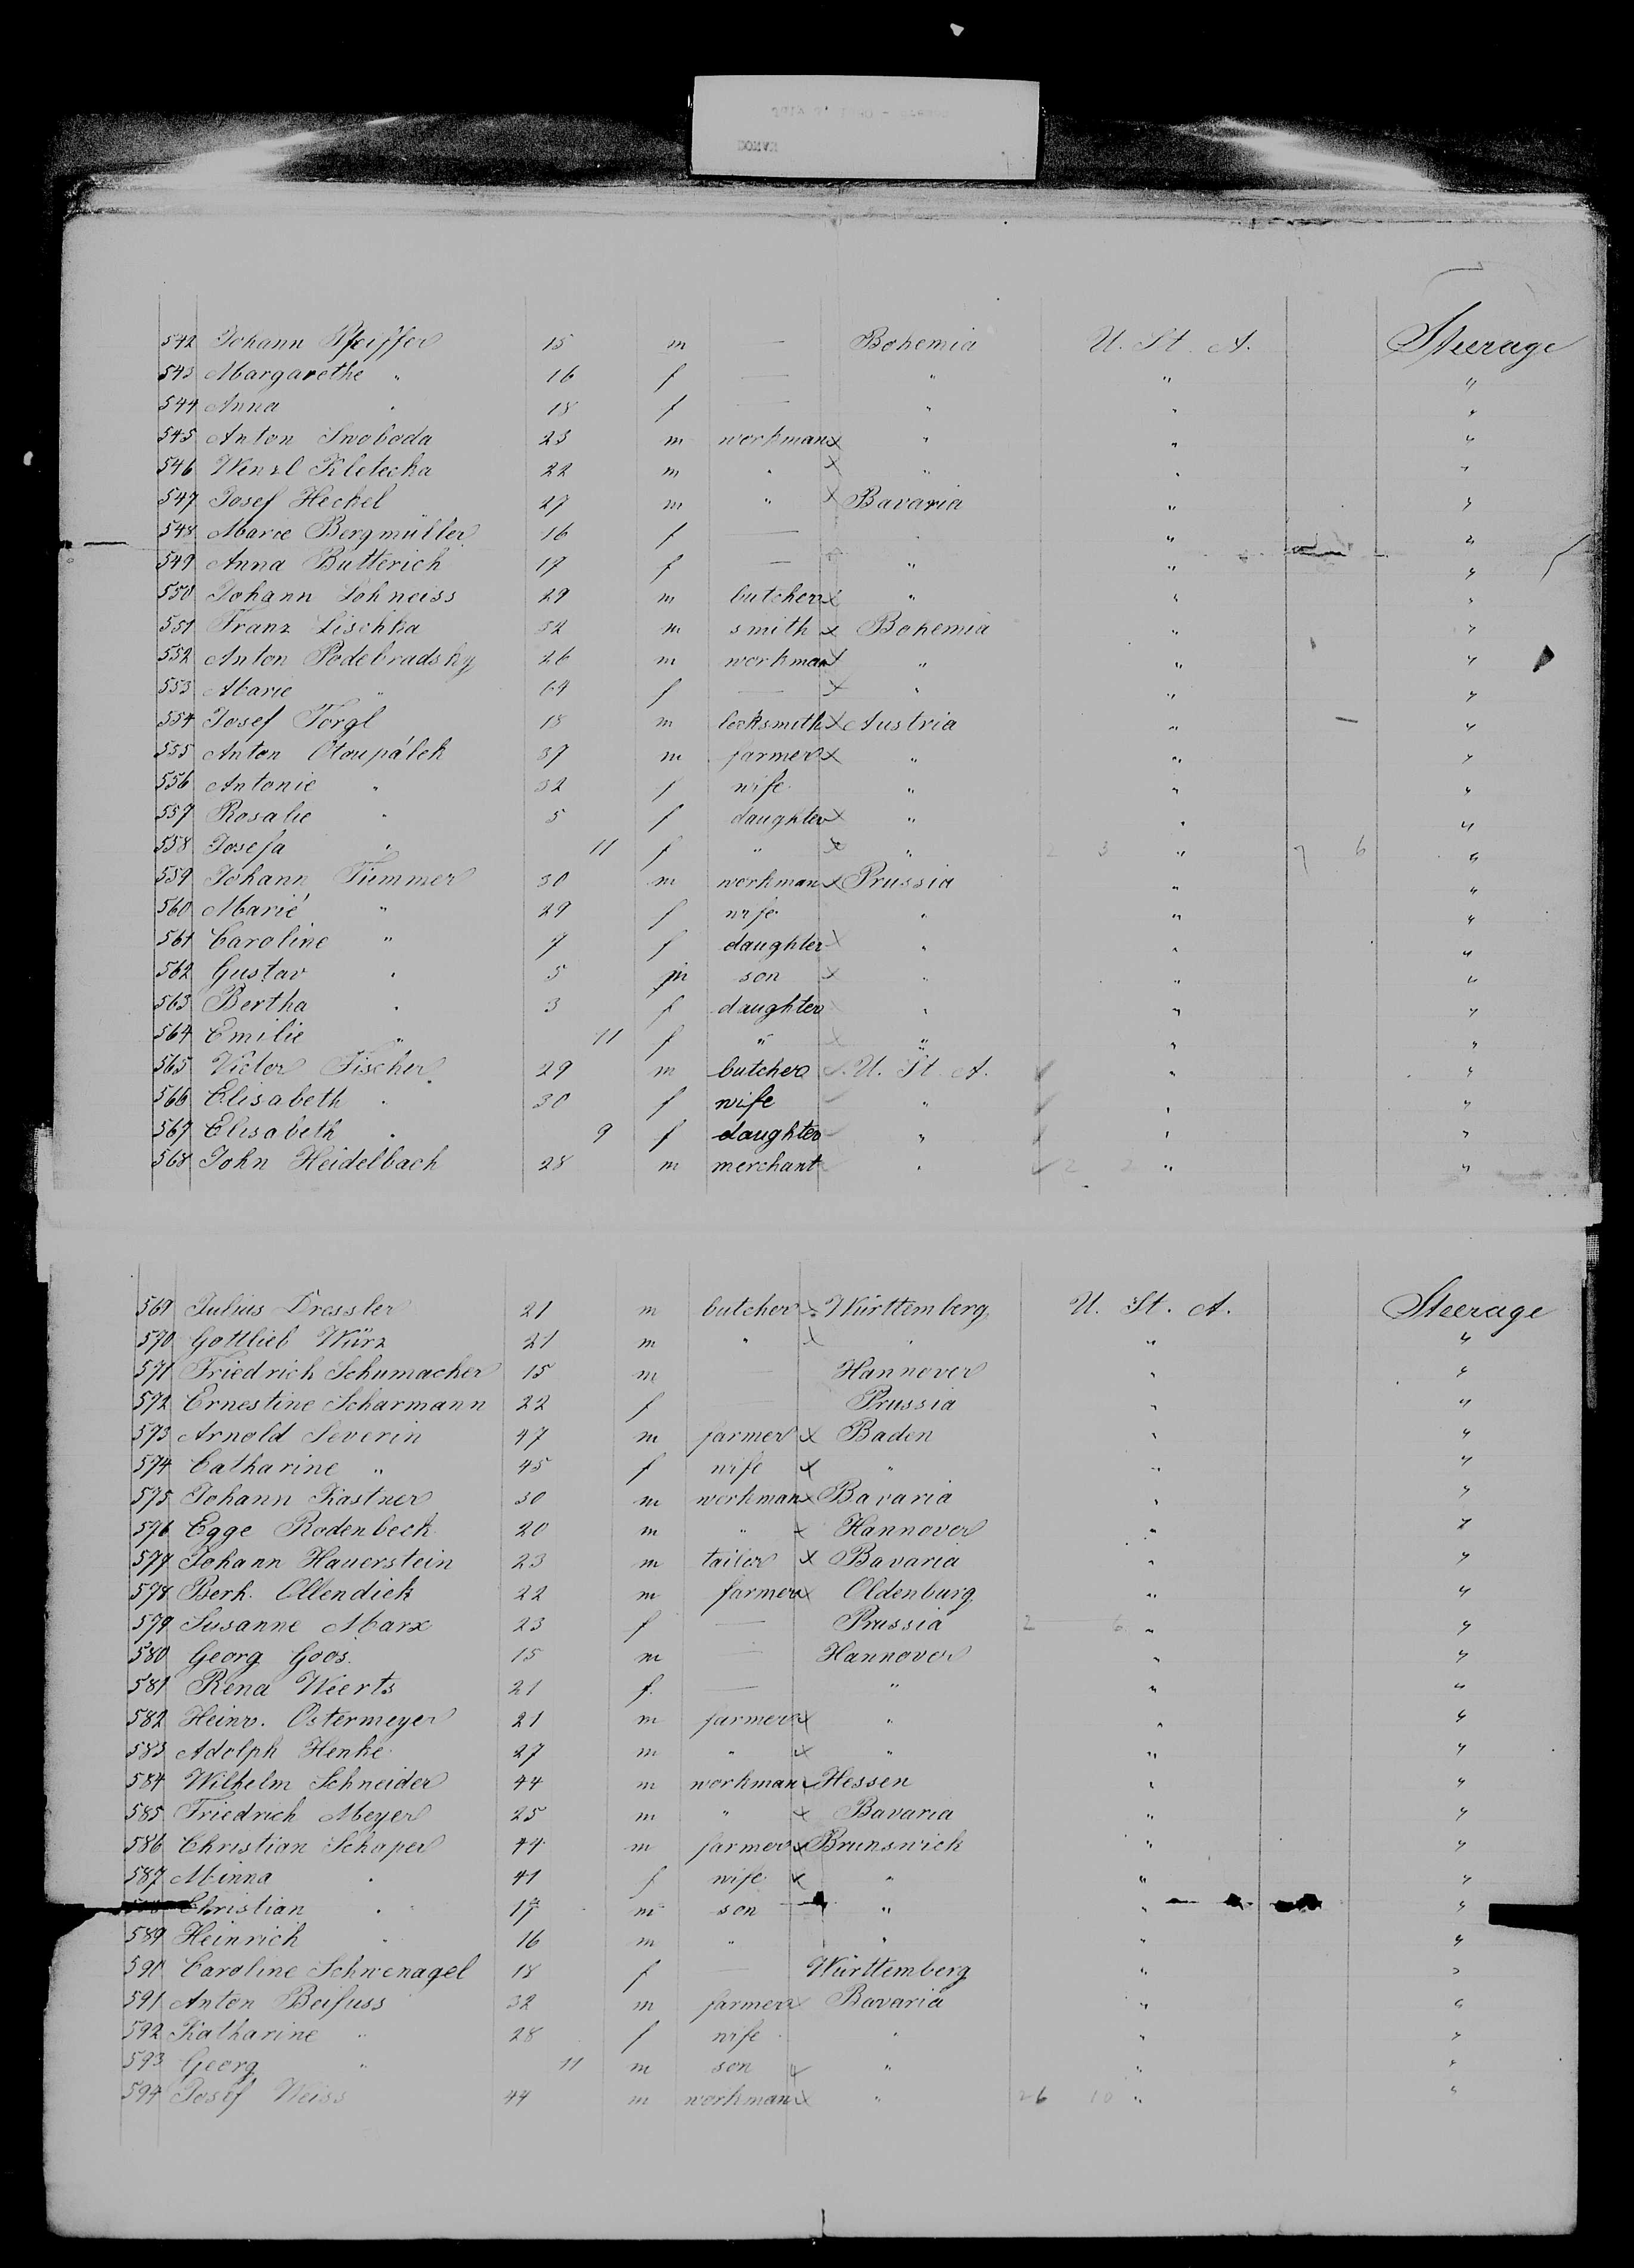 542 Johann Pfeiffer 15 m — Bohemia U. St. A. Steerage
543 Margarethe " 16 f — " " "
544 Anna " 18 f — " " "
545 Anton Swoboda 23 m workman x " " "
546 Wenzl Kletecka 22 m " x " " "
547 Josef Heckel 27 m " x Bavaria " "
548 Marie Bergmüller 16 f — " " "
549 Anna Butterich 17 f — " " "
550 Johann Lohneiss 29 m butcher x " " "
551 Franz Lischka 52 m smith x Bohemia " "
552 Anton Podebradsky 26 m workman x " " "
553 Marie " f — x " " "
554 Josef Törgl 18 m locksmith x Austria " "
555 Anton Otoupálek 37 m farmer x " " "
556 Antonie " 32 f wife " " "
557 Rosalie " 5 f daughter x " " "
558 Josefa " 11 f " x " 2 3 " 7 6 "
559 Johann Fümmer 30 m workman x Prussia " "
560 Marie " 29 f wife " " "
561 Caroline " 7 f daughter x " " "
562 Gustav " 5 m son x " " "
563 Bertha " 3 f daughter x " " "
564 Emilie " 11 f " x " " "
565 Victor Fischer 29 m butcher U. St. A. " "
566 Elisabeth " 30 f wife " " "
567 Elisabeth " 9 f daughter " " "
568 John Heidelbach 28 m merchant " 2 2 " "
569 Julius Dressler 21 m butcher x Württemberg U. St. A. Steerage
570 Gottlieb Würz 21 m " x " " "
571 Friedrich Schumacher 15 m — Hannover " "
572 Ernestine Scharmann 22 f — Prussia " "
573 Arnold Severin 47 m farmer x Baden " "
574 Catharine " 45 f wife x " " "
575 Johann Kastner 30 m workman x Bavaria " "
576 Egge Rodenbeck 20 m " x Hannover " "
577 Johann Hauerstein 23 m tailor x Bavaria " "
578 Berh. Ollendiek 22 m farmer x Oldenburg " "
579 Susanne Marx 23 f — Prussia 2 6 " "
580 Georg Goos 15 m — Hannover " "
581 Rena Weerts 21 f — " " "
582 Heinr. Ostermeyer 21 m farmer x " " "
583 Adolph Henke 27 m " x " " "
584 Wilhelm Schneider 44 m workman x Hessen " "
585 Friedrich Meyer 25 m " x Bavaria " "
586 Christian Schaper 44 m farmer x Brunswick " "
587 Minna " 41 f wife x " " "
Christian " 17 m son " " "
589 Heinrich " 16 m " " " "
590 Caroline Schwenagel 18 f — Württemberg " "
591 Anton Beifuss 32 m farmer x Bavaria " "
592 Katharine " 28 f wife " " "
593 Georg " 11 m son x " " "
594 Josef Weiss 44 m workman x " 26 10 " "